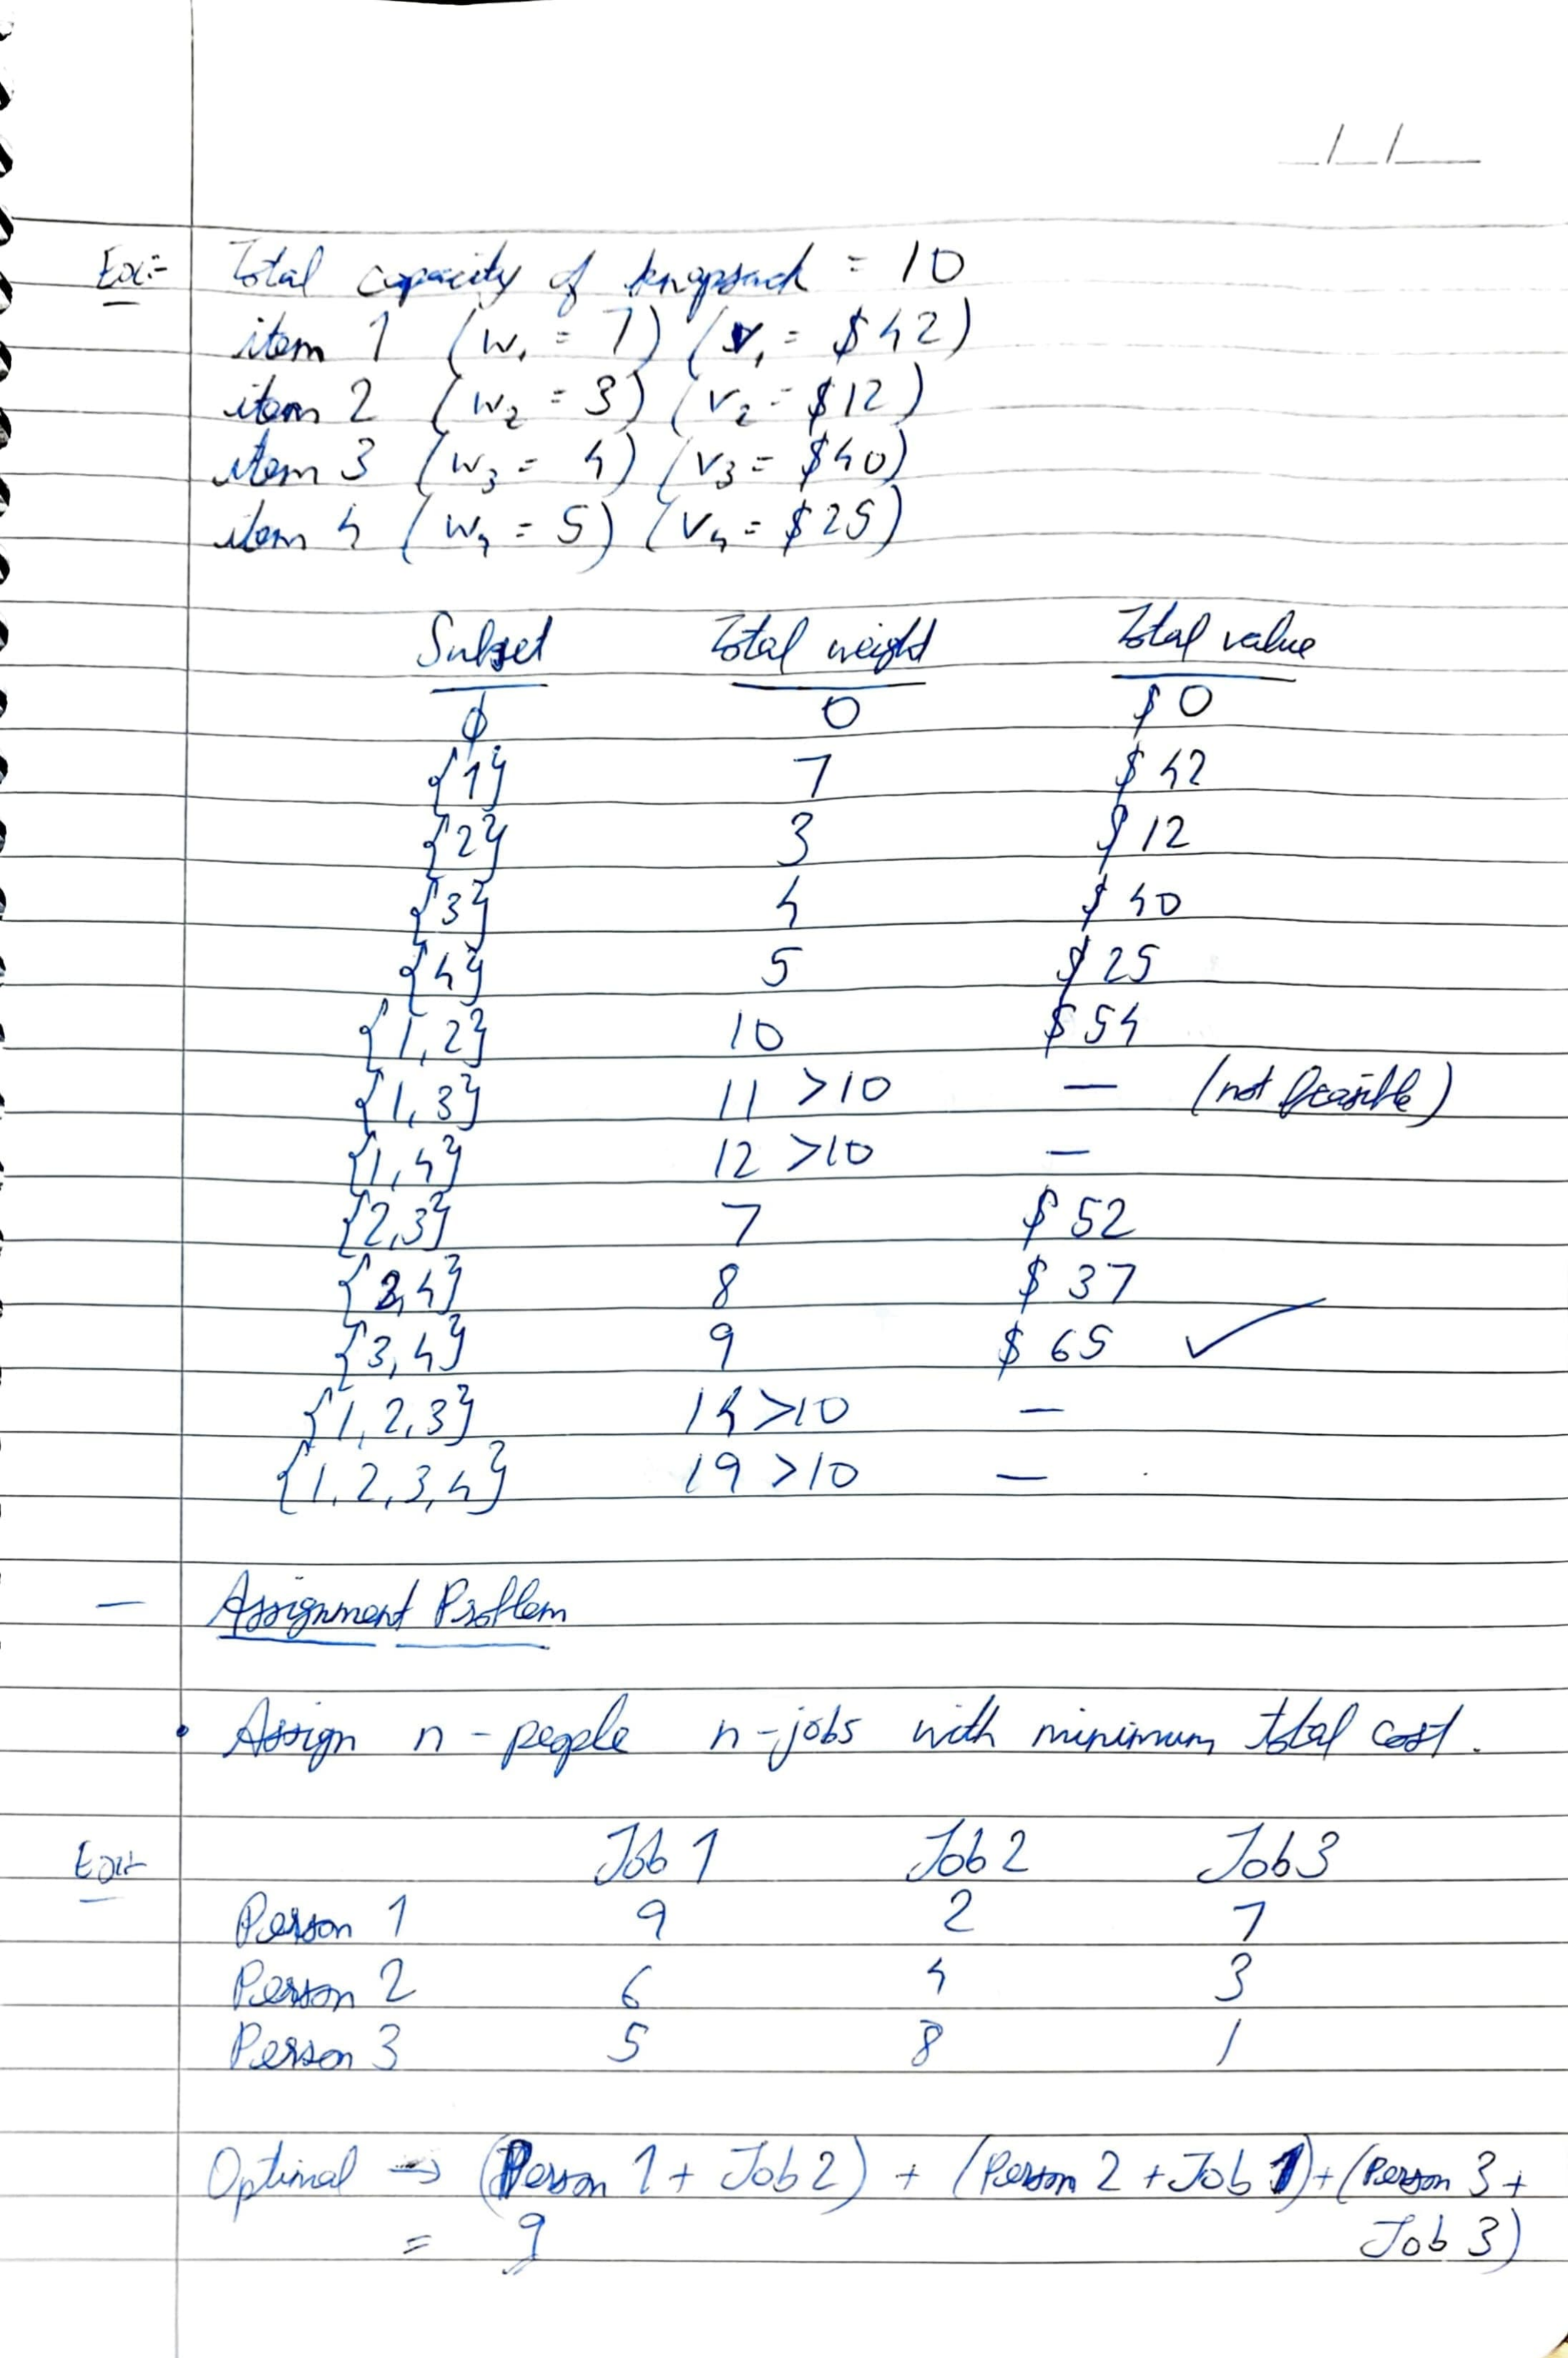 _/_/_
Ex:- Total capacity of knapsack = 10
item 1 (w₁ = 7) (v₁ = $42)
item 2 (w₂ = 3) (v₂ = $12)
item 3 (w₃ = 4) (v₃ = $40)
item 4 (w₄ = 5) (v₄ = $25)
Subset Total weight Total value
ϕ 0 $0
{1} 7 $42
{2} 3 $12
{3} 4 $40
{4} 5 $25
{1,2} 10 $54
{1,3} 11 >10 — (not feasible)
{1,4} 12 >10 —
{2,3} 7 $52
{2,4} 8 $37
{3,4} 9 $65 ✓
{1,2,3} 14>10 —
{1,2,3,4} 19 >10 —
— Assignment Problem
• Assign n-people n-jobs with minimum total cost.
Ex:- Job 1 Job 2 Job 3
Person 1 9 2 7
Person 2 6 4 3
Person 3 5 8 1
Optimal → (Person 1 + Job 2) + (Person 2 + Job 1) + (Person 3 +
= 9 Job 3)